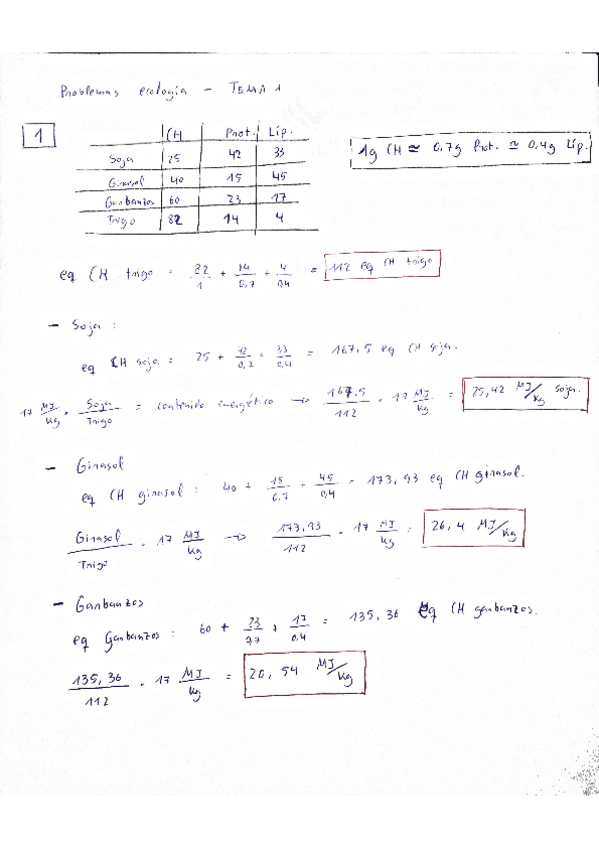 Problemas ecología - TEMA 1
1
CH Prot. Lip.
Soja 25 42 33
Girasol 40 15 45
Garbanzos 60 23 17
Trigo 82 14 4
1g CH ≃ 0.7g Prot. ≃ 0.4g Lip.
eq CH trigo = 82/1 + 14/0,7 + 4/0,4 = 112 eq CH trigo
- Soja :
eq CH soja = 25 + 42/0,7 + 33/0,4 = 167.5 eq CH soja.
17 MJ/kg · Soja/Trigo = contenido energético → 167.5/112 · 17 MJ/kg = 25,42 MJ/kg soja.
- Girasol
eq CH girasol : 40 + 15/0,7 + 45/0,4 = 173,93 eq CH girasol.
Girasol/Trigo · 17 MJ/kg → 173,93/112 · 17 MJ/kg = 26,4 MJ/kg
- Garbanzos
eq Garbanzos : 60 + 23/0,7 + 17/0,4 = 135,36 eq CH garbanzos.
135,36/112 · 17 MJ/kg = 20,54 MJ/kg